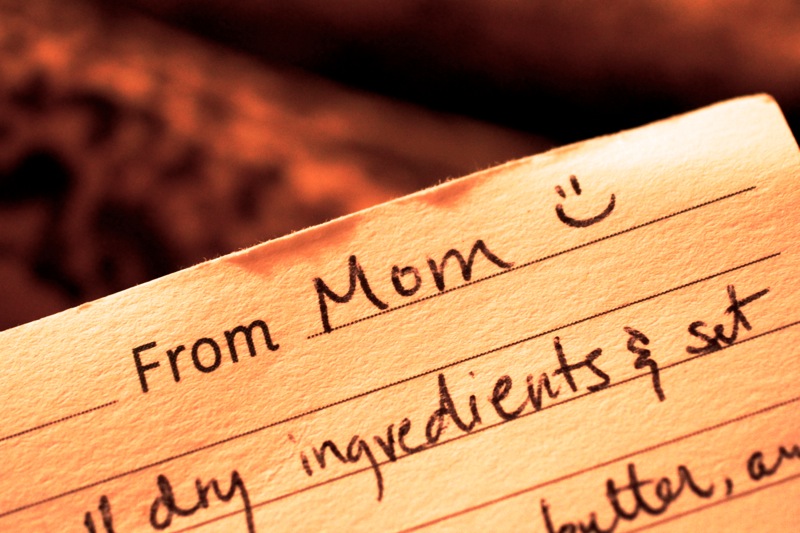 From Mom
dry ingredients & set
butter,